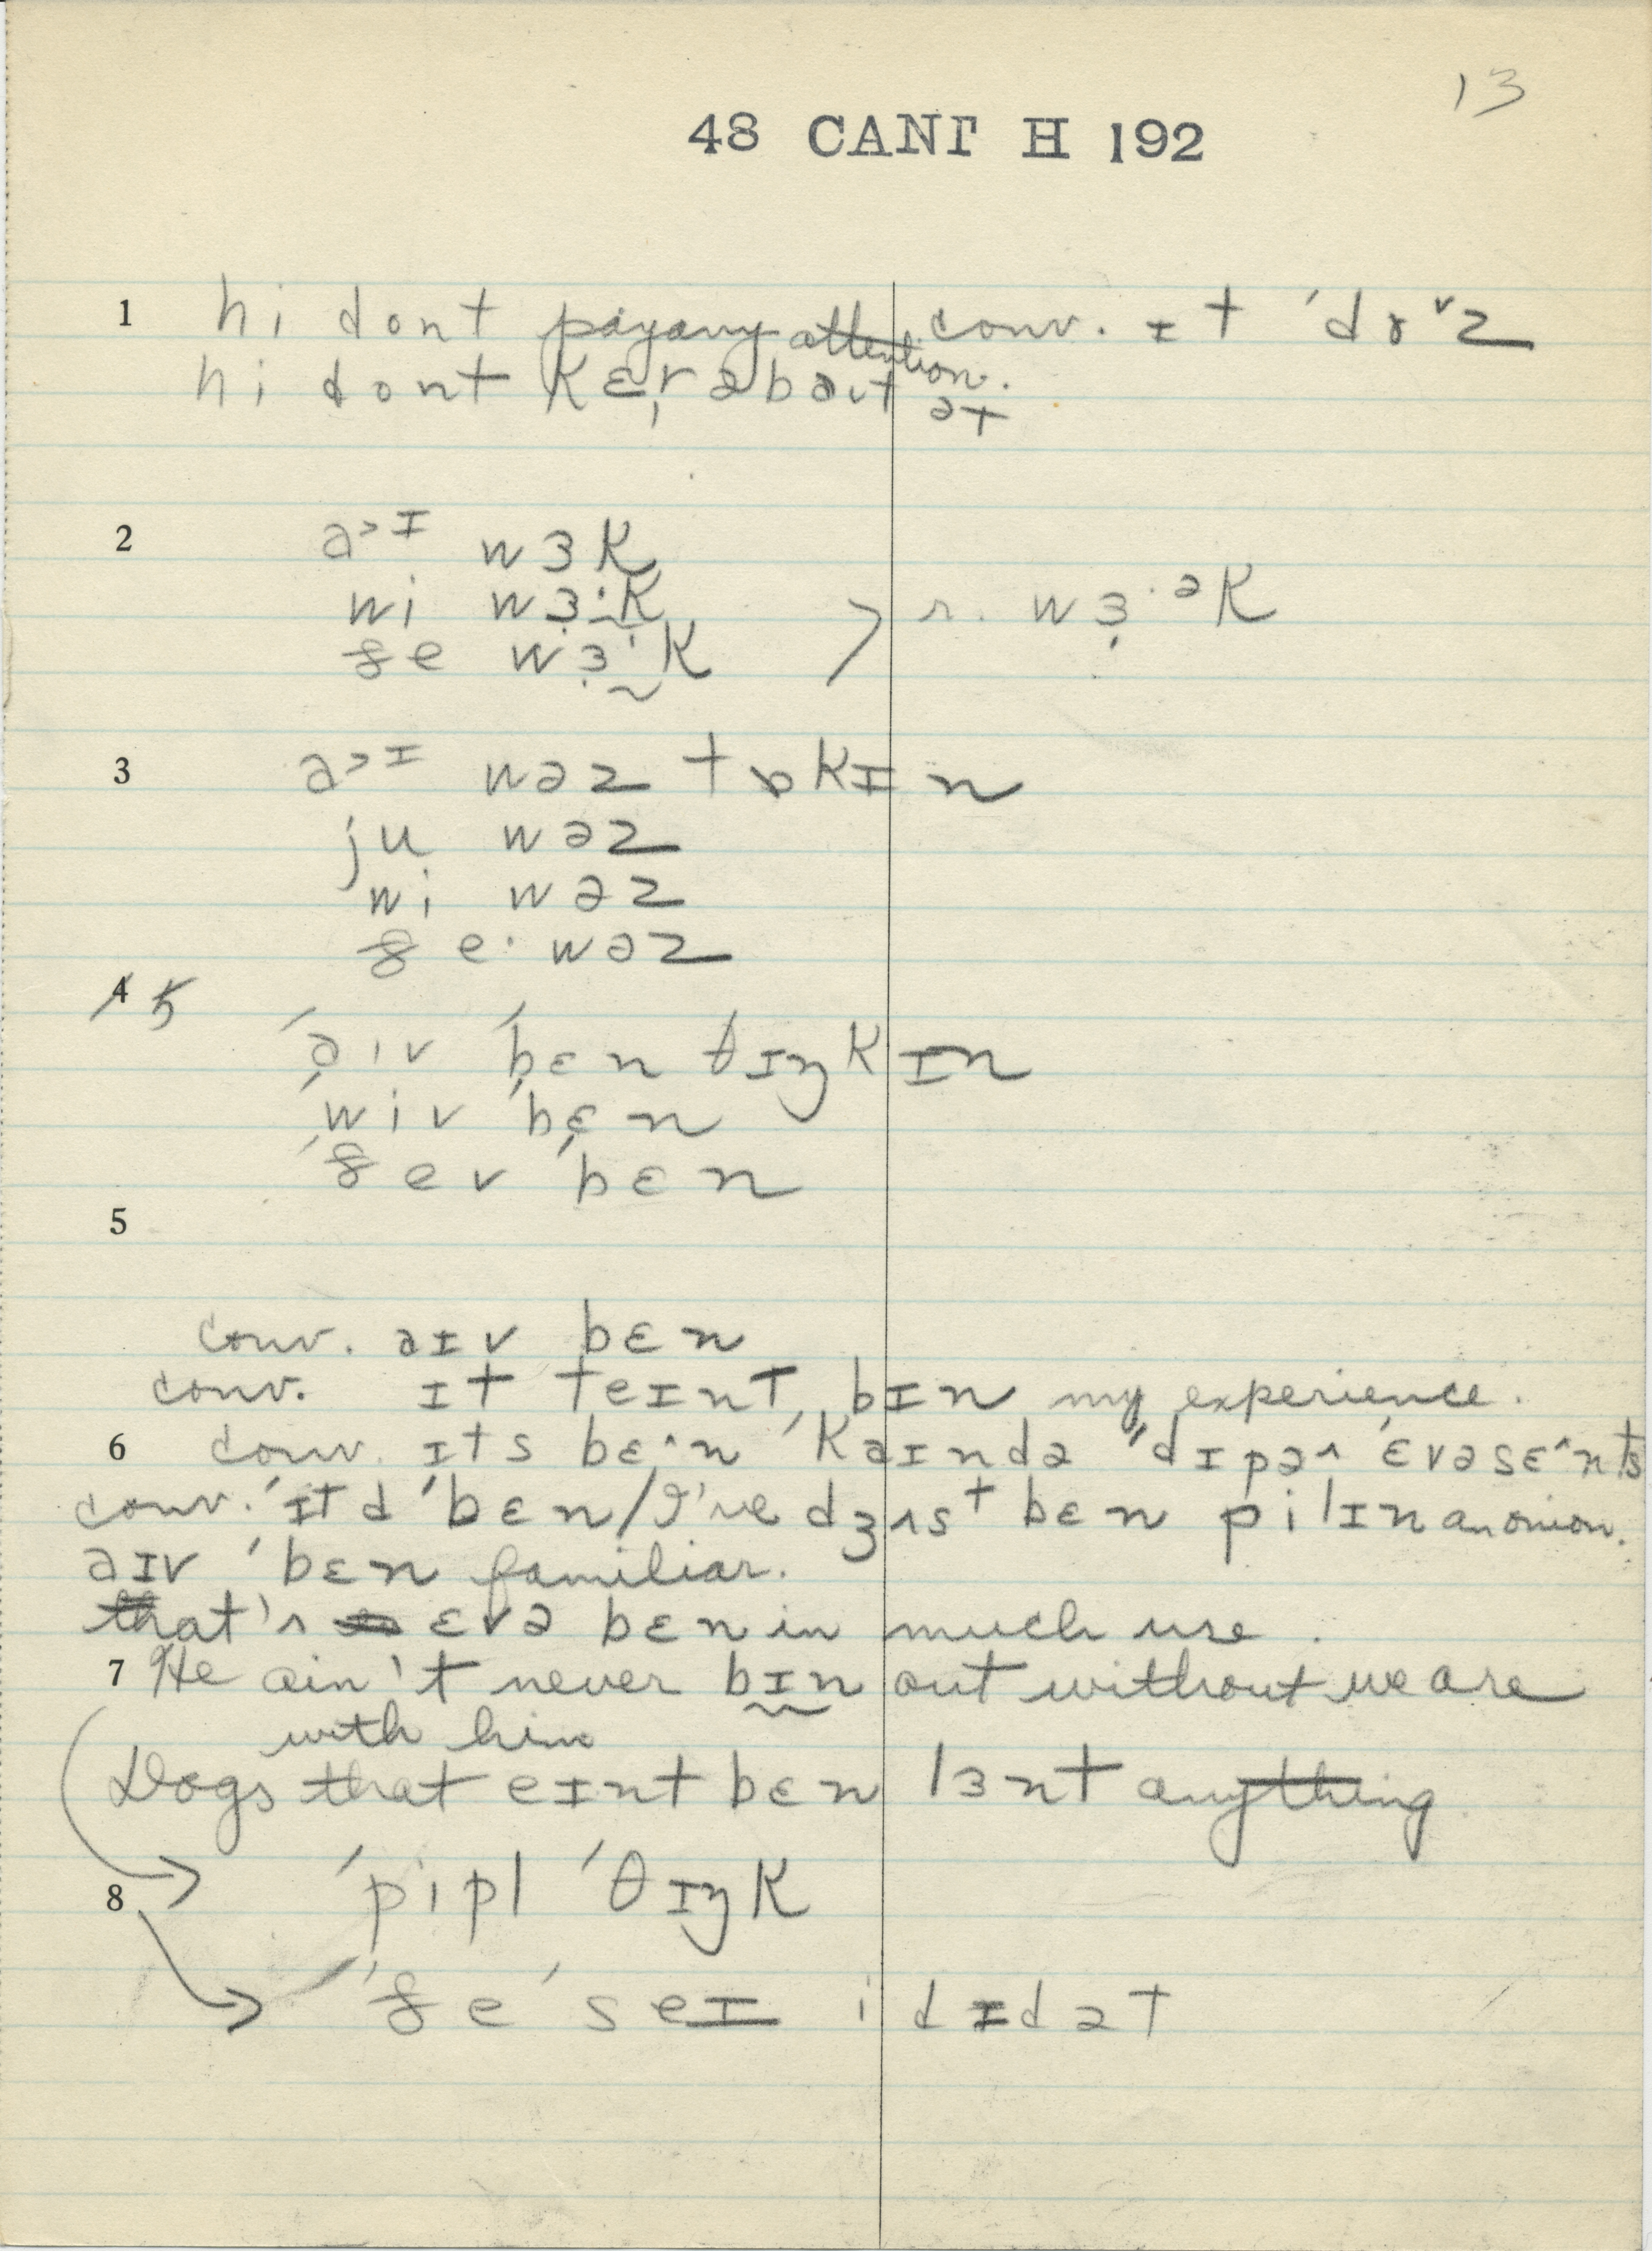 13
48 CANT H 192
1 hi dont pay any attention. conv. ɪt ˈdɤ˅z
hi dont kɛr əbaut ət
2 a˃ɪ wɜk
wi wɜ̣·k
ðe wɜ̣·k > r. wɜ̣·ək
3 a˃ɪ wəz tɒkɪn
ju wəz
wi wəz
ðe· wəz
4 5
ˈəiv ˈbɛn θɪŋkɪn
ˈwiv ˈbɛn
ˈðev ˈbɛn
5
conv. əɪv bɛn
conv. ɪt teɪnt bɪn my experience.
6 conv. ɪts bɛ^n ˈkaɪndə ˈdɪpə^ ˈɛvəsɛ^nts
conv. ˈɪtd ˈbɛn/I've dʒʌst bɛn pilɪn an onion.
aɪv ˈbɛn familiar.
that's ɛvə bɛn in much use.
7 He ain't never bɪn out without we are
with him
Dogs that eɪnt bɛn lɜnt anything
8 ˈpipl ˈθɪŋk
ˈðe ˈseɪ i dɪd ət